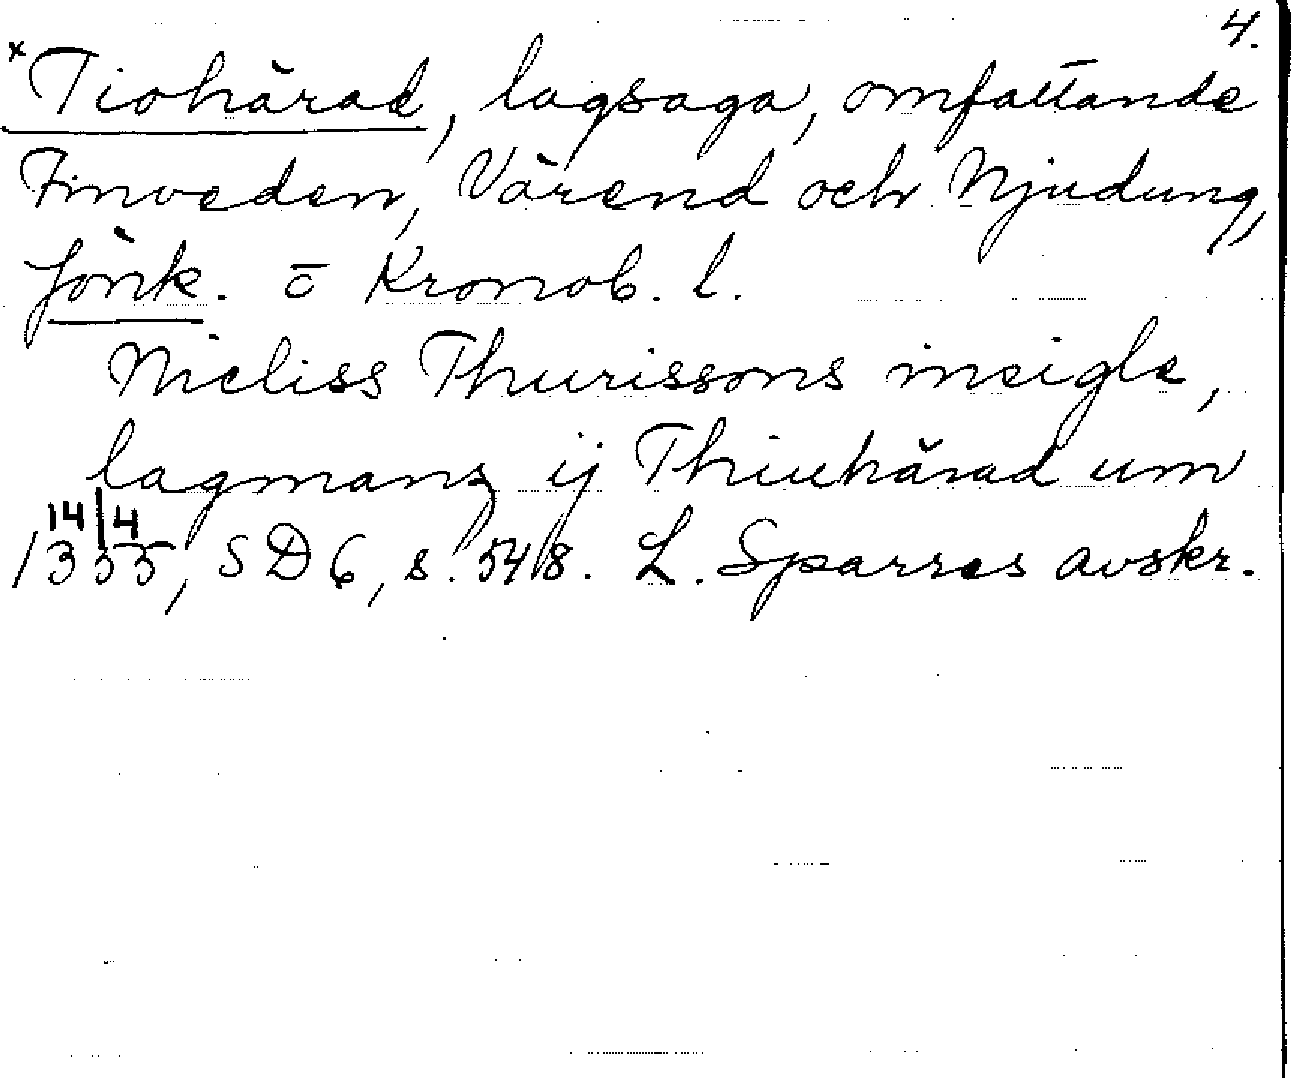 4.
x Tiohärad, lagsaga, omfattande
Finveden, Värend och Njudung,
Jönk. o Kronob. l.
Nieliss Thurissons insigle,
lagmanz ij Thiuhärad um
14/4
1355, SD 6, s. 548. L. Sparres avskr.